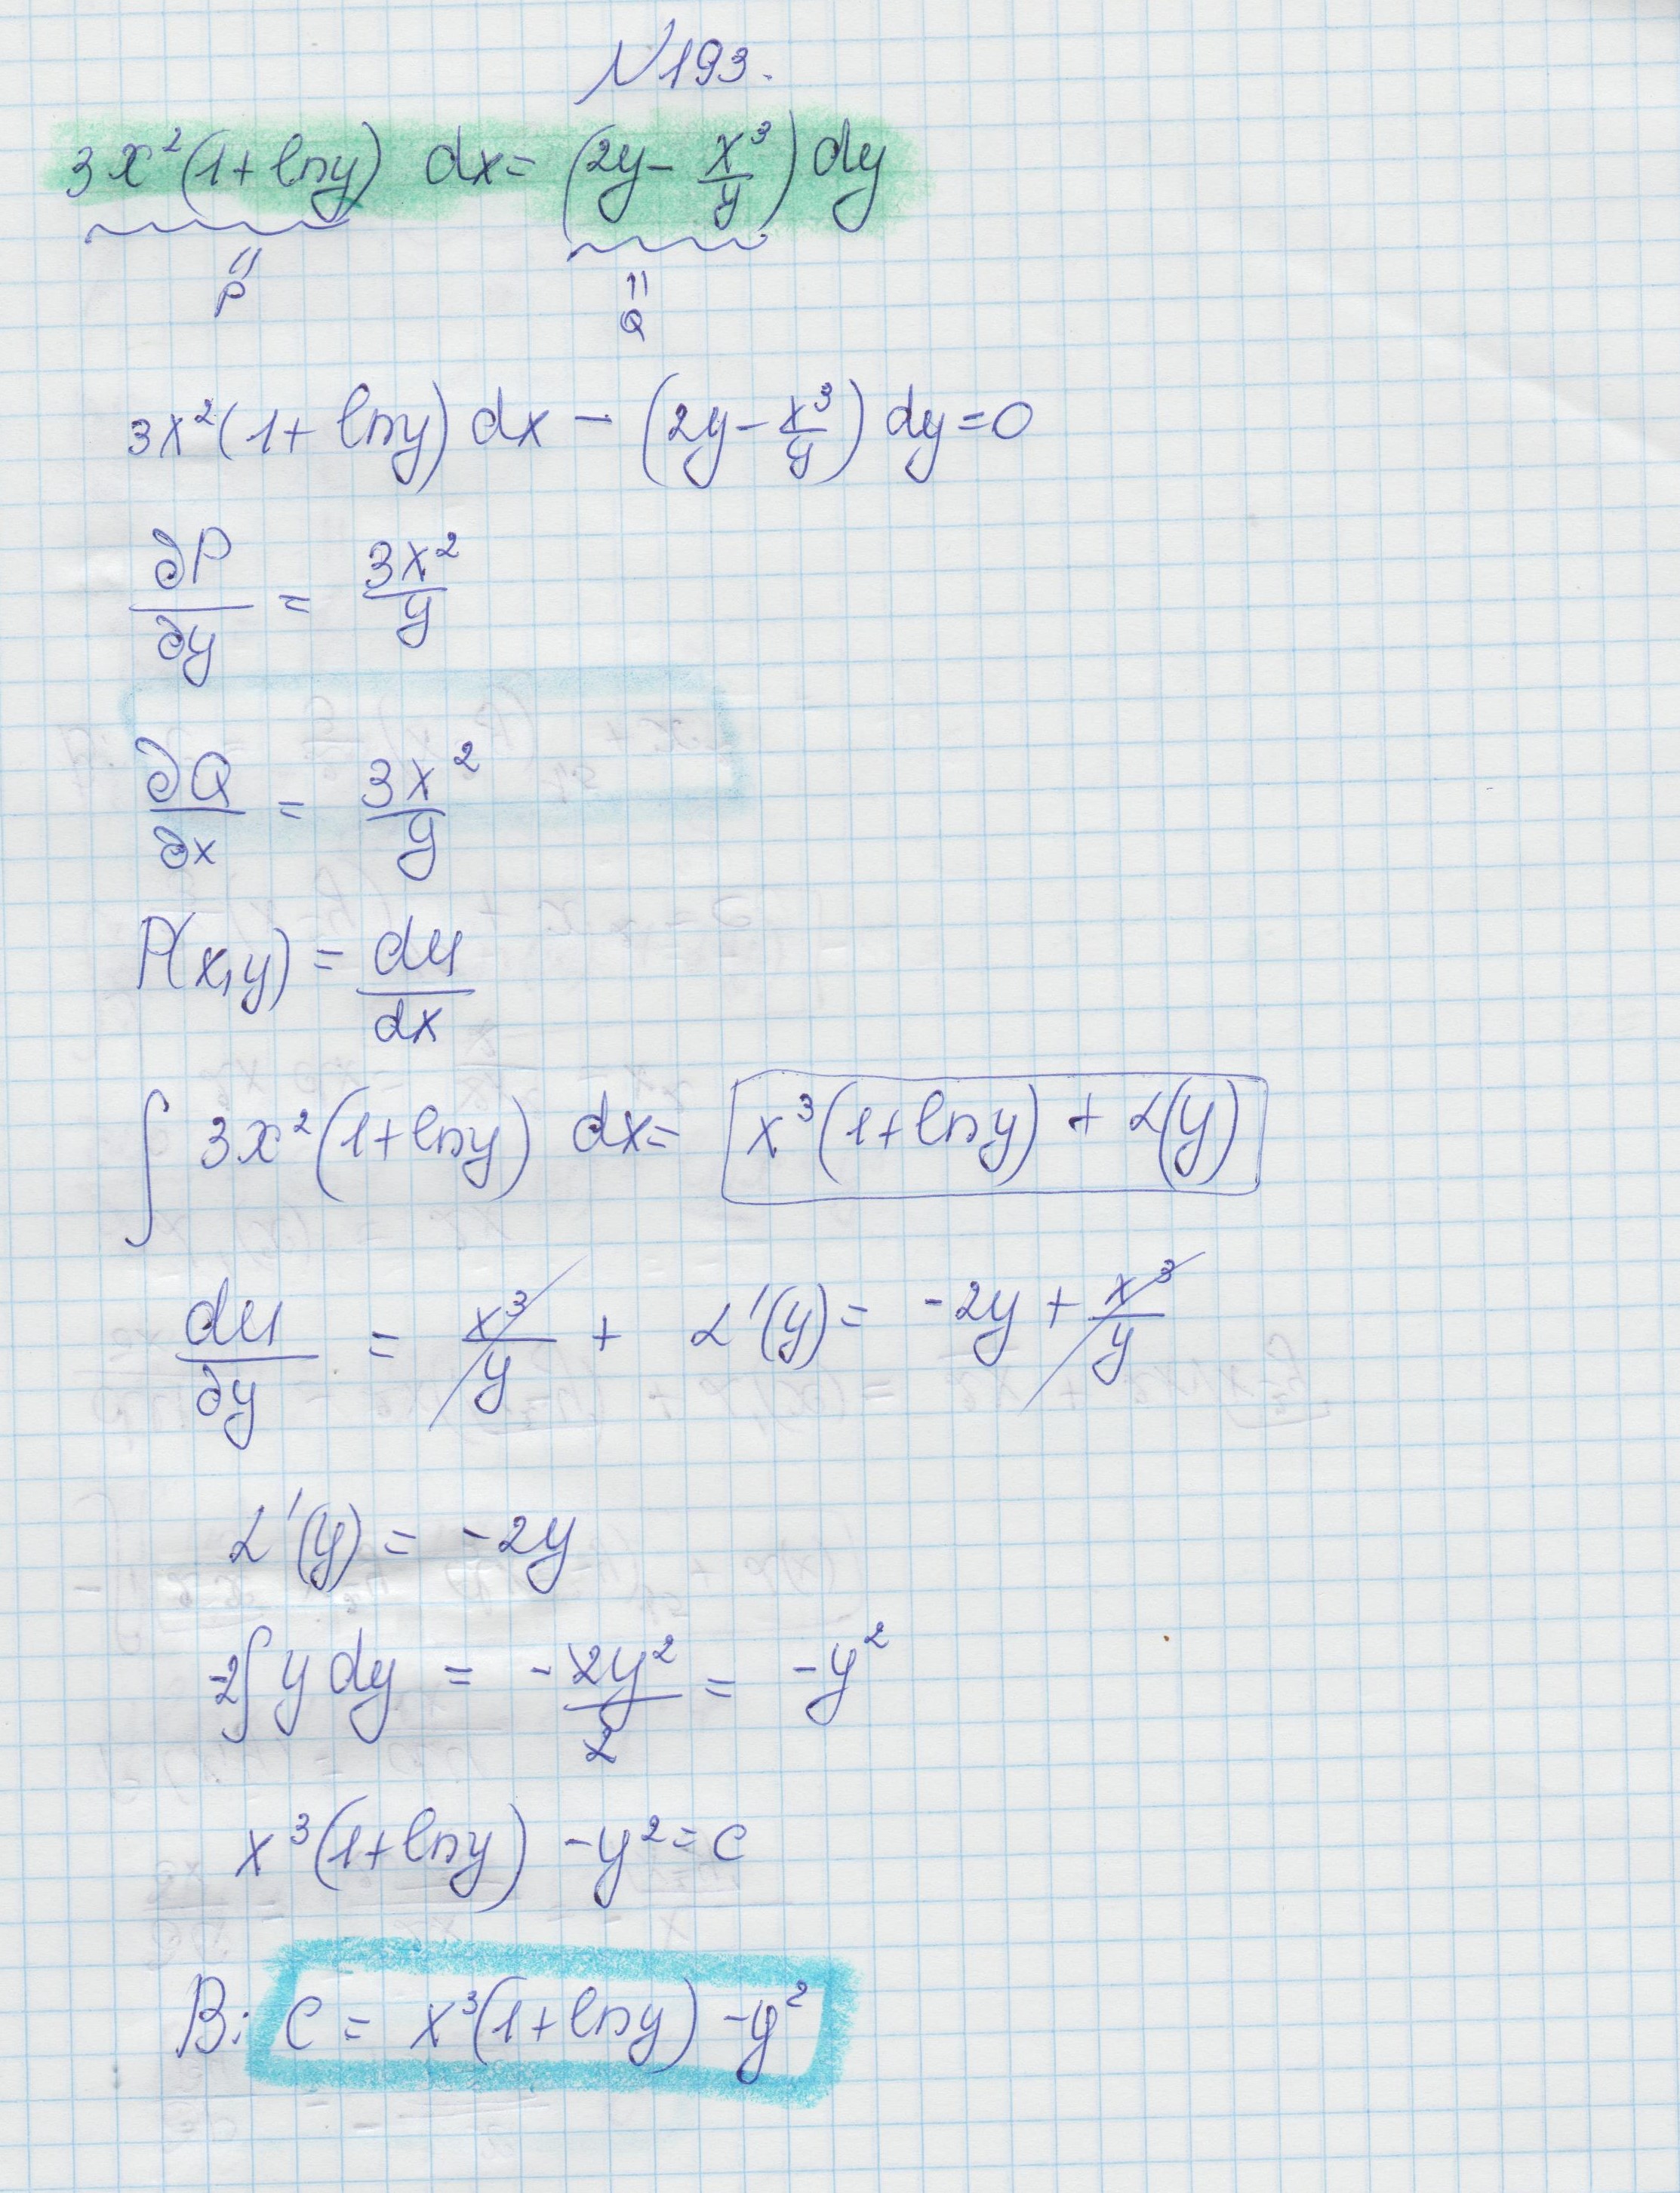 N193.
3x²(1+lny) dx = (2y - x³/y) dy
"P
"Q
3x²(1+lny) dx - (2y - x³/y) dy = 0
∂P/∂y = 3x²/y
∂Q/∂x = 3x²/y
P(x,y) = du/dx
∫ 3x²(1+lny) dx = x³(1+lny) + L(y)
du/∂y = x³/y + L'(y) = -2y + x³/y
L'(y) = -2y
-2∫y dy = -2y²/2 = -y²
x³(1+lny) - y² = C
B: C = x³(1+lny) - y²